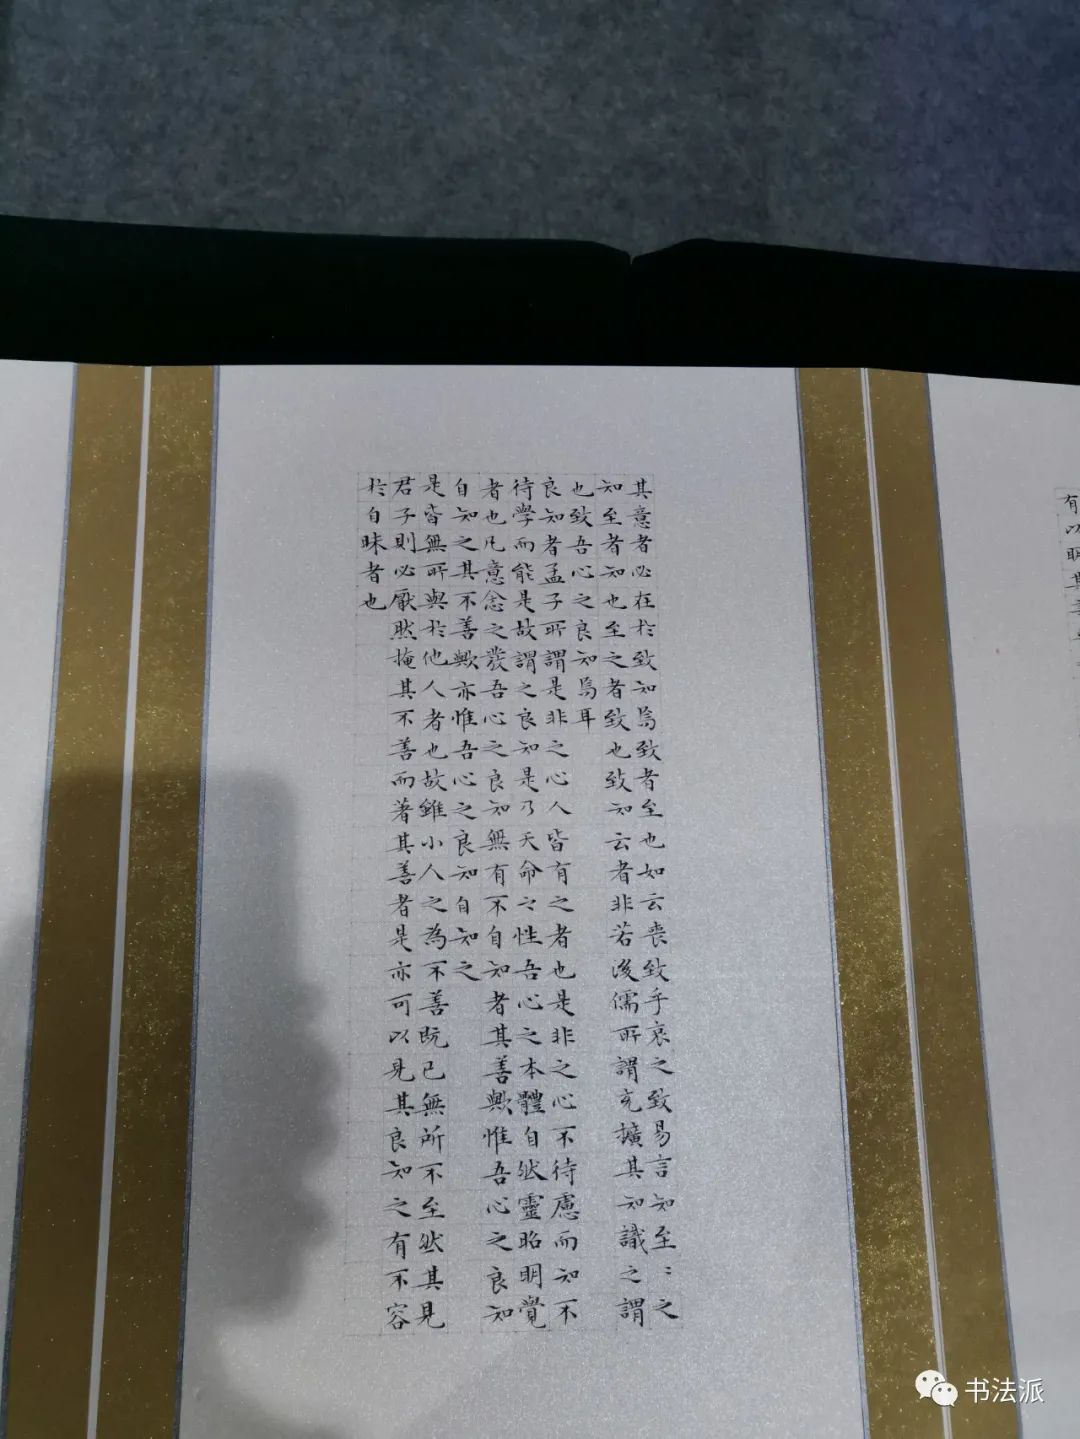 有以明其
其意者必在於致知焉致者至也如云喪致乎哀之致易言知至〻之
知至者知也至之者致也致知云者非若後儒所謂充擴其知識之謂
也致吾心之良知焉耳
良知者孟子所謂是非之心人皆有之者也是非之心不待慮而知不
待學而能是故謂之良知是乃天命之性吾心之本體自然靈昭明覺
者也凡意念之發吾心之良知無有不自知者其善歟惟吾心之良知
自知之其不善歟亦惟吾心之良知自知之
是皆無所與於他人者也故雖小人之為不善既已無所不至然其見
君子則必厭然掩其不善而著其善者是亦可以見其良知之有不容
於自昧者也
书法派